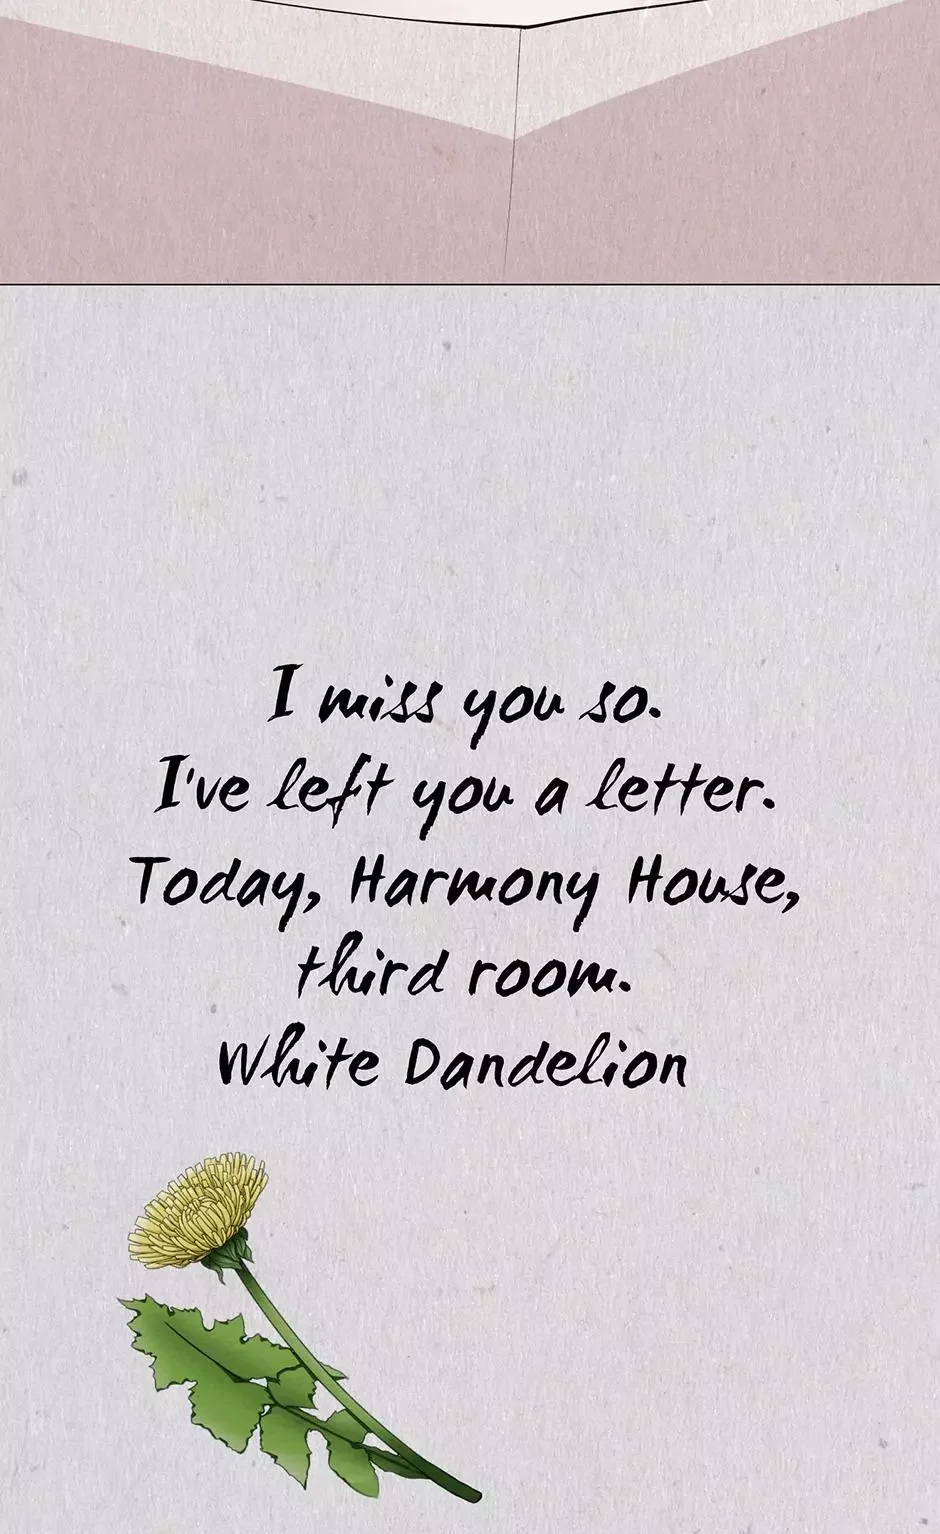 I miss you so.
I've left you a letter.
Today, Harmony House,
third room.
White Dandelion